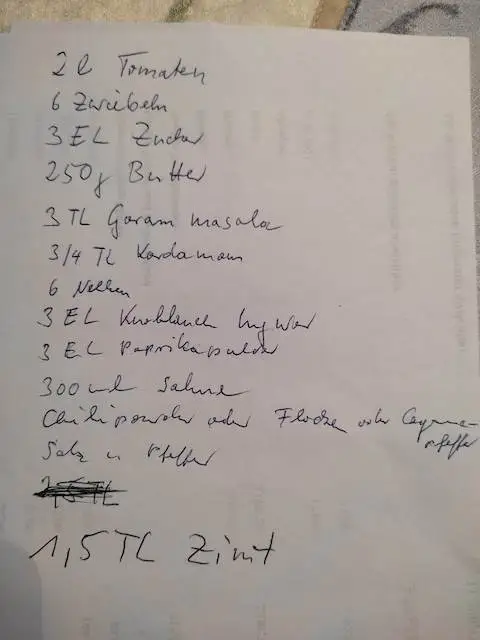 2 l Tomaten
6 Zwiebeln
3 EL Zucker
250g Butter
3 TL Garam masala
3/4 TL Kardamom
6 Nelken
3 EL Knoblauch Ingwer
3 EL Paprikapulver
300 ml Sahne
Chilipowder oder Flocken oder Cayenne-
pfeffer
Salz u Pfeffer
1,5 TL Zimt